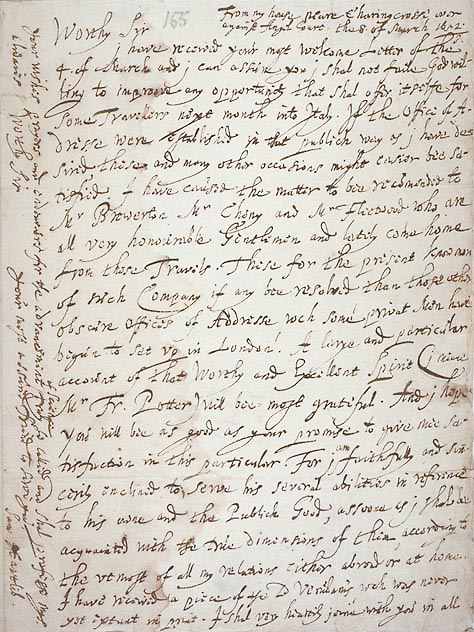 155
From my house neare Charing crosse over
against Angel Court. the 8. of March 1652
Worthy Sir
j have received your most welcome Letter of the
4. of March and j can assure you j shal not faile God wil-
ling to improve any opportunity that shal offer itselfe for
some Travelers next month into Italy. If the Office of Ad-
dresse were established in that publick way as j have de-
sired these and many other occasions might easier bee sa-
tisfied. j have caused the matter to bee recommended to
Mr Brewerton Mr Cheny and Mr Fleetwood who are
all very honourable Gentlemen and lately come home
from those Travels. These for the present know non
of such Company if any bee resolved than those other
obscure Offices of Addresse wch some privat Men have
begun to set up in London. A large and particular
account of that Worthy and Excellent Spirit (j meane
Mr Fr. Potter) will bee most grateful. And j hope
you will bee as good as your promise to give mee sa-
tisfaction in this particular. For j am faithfully and sin-
cerely enclined to serve his several abilities in reference
to his owne and the Publick Good, assoone as j shal bee
acquainted with the true dimensions of them, according to
the utmost of all my relations either abroad or at home.
I have received a piece of the D Verulams wch was never
yet extant in print. I shal very heartily joine with you in all
your wishes and for the advancement of
always Worthy Sir
your most assured friend to serve you
Sam. Hartlib